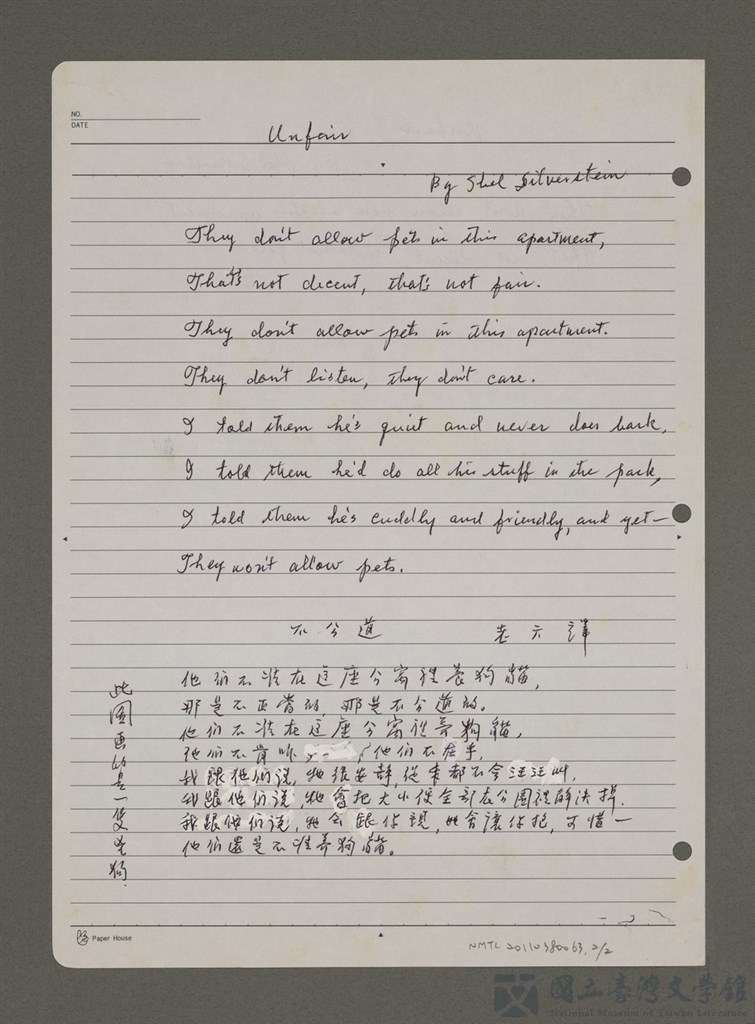 NO.
DATE
Unfair
By Shel Silverstein
They don't allow pets in this apartment,
That's not decent, that's not fair.
They don't allow pets in this apartment.
They don't listen, they don't care.
I told them he's quiet and never does bark,
I told them he'd do all his stuff in the park,
I told them he's cuddly and friendly, and yet—
They won't allow pets.
不公道 老六譯
他们不准在這座公寓裡養狗貓,
那是不正當的,那是不公道的。
他们不准在這座公寓裡養狗貓,
他们不肯听,他们不在乎,
我跟他们说,牠很安靜,從來都不会汪汪叫,
我跟他们说,牠會把大小便全部在公園裡解決掉.
我跟他们说,牠会跟你親,牠會讓你抱,可惜—
他们還是不准養狗貓。
此圖画的是一隻
Paper House
NMTL 20110380063, 2/2
國立臺灣文學館
National Museum of Taiwan Literature